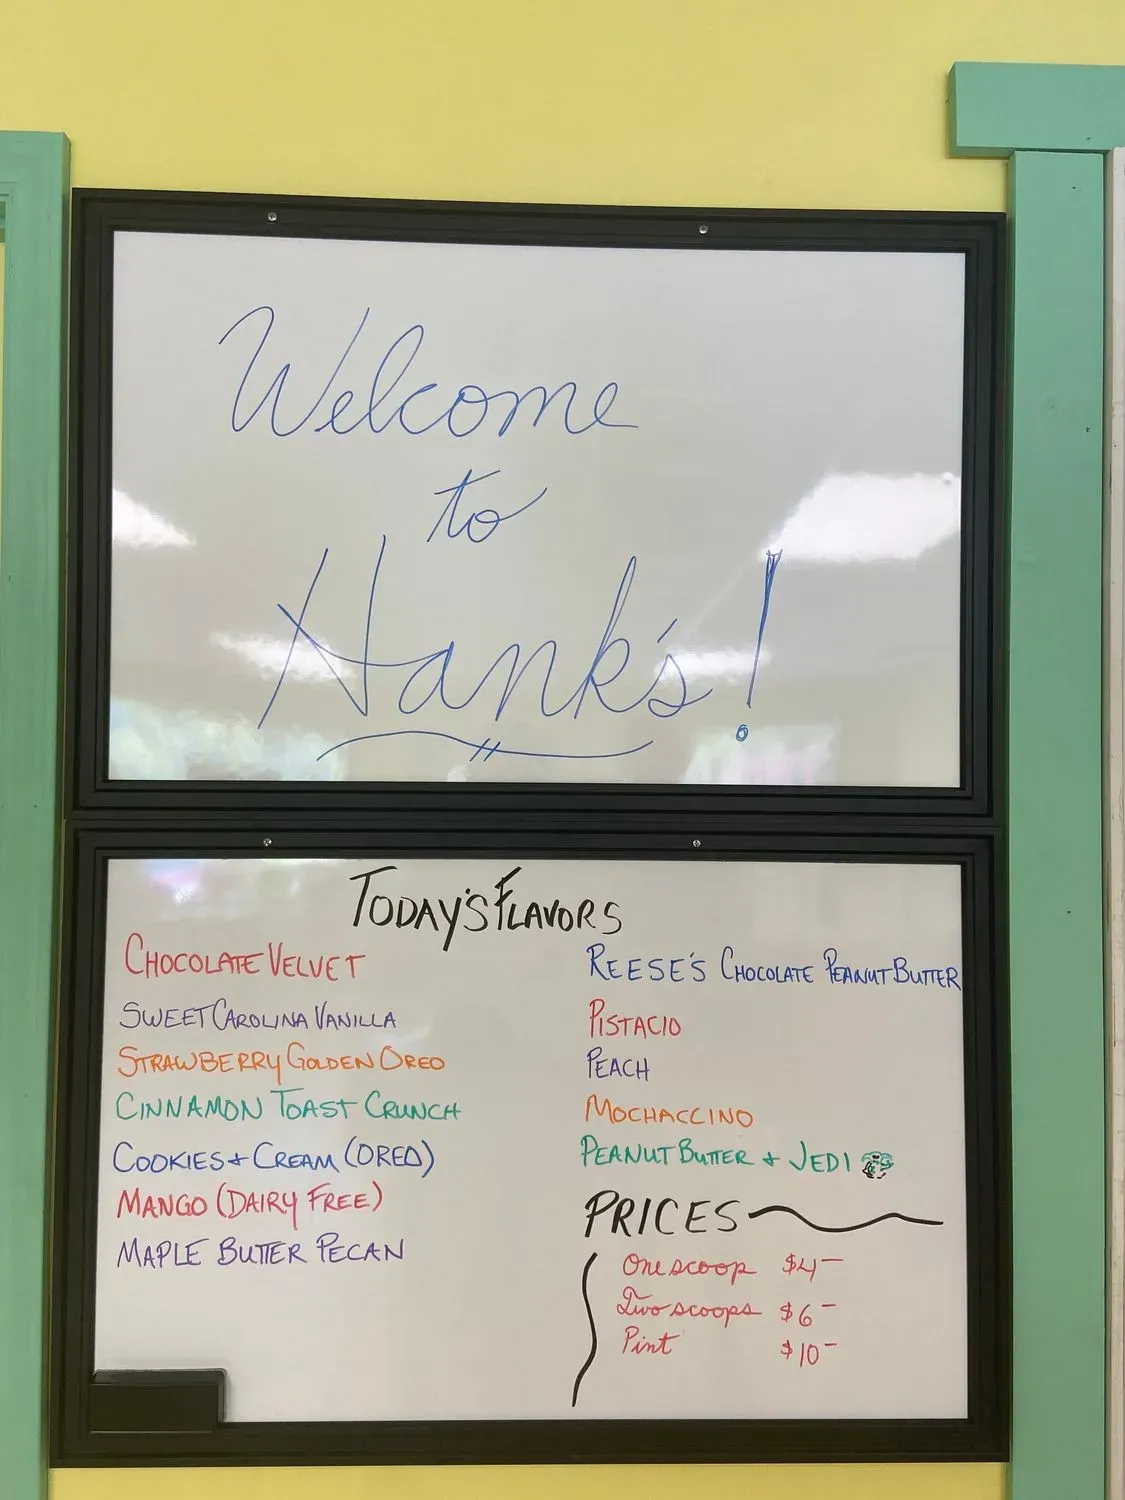 Welcome
to
Hank's!
TODAY'S FLAVORS
CHOCOLATE VELVET
SWEET CAROLINA VANILLA
STRAWBERRY GOLDEN OREO
CINNAMON TOAST CRUNCH
COOKIES + CREAM (OREO)
MANGO (DAIRY FREE)
MAPLE BUTTER PECAN
REESE'S CHOCOLATE PEANUT BUTTER
PISTACIO
PEACH
MOCHACCINO
PEANUT BUTTER + JEDI
PRICES
One scoop $4-
Two scoops $6-
Pint $10-